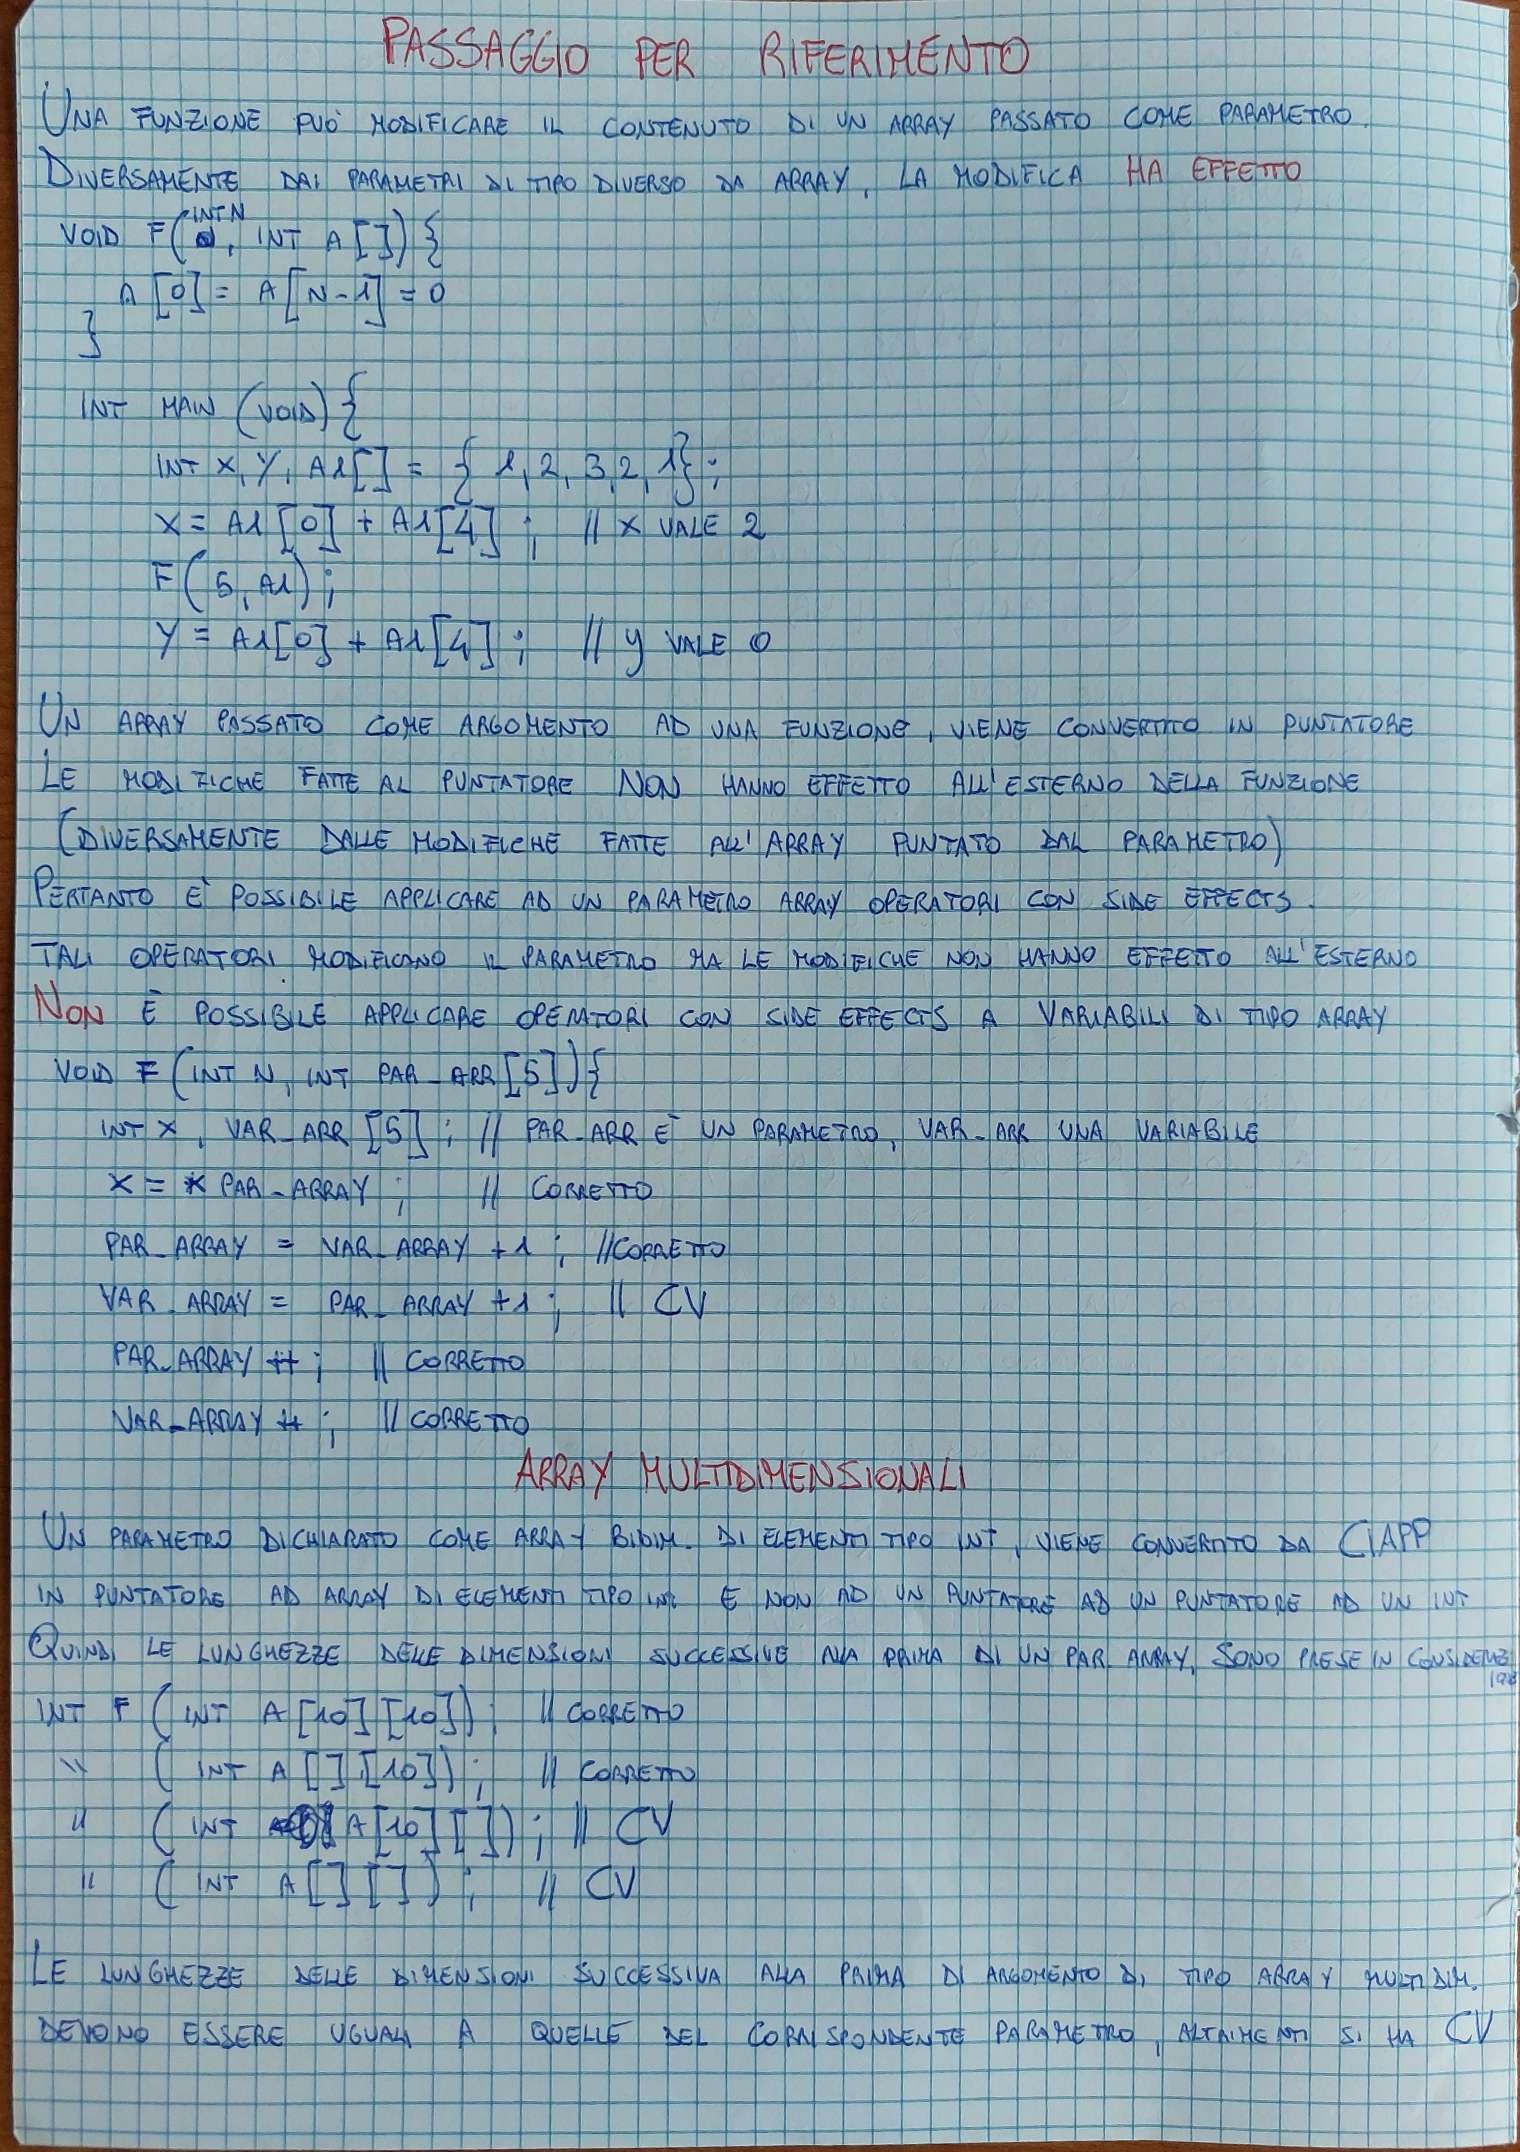 PASSAGGIO PER RIFERIMENTO
UNA FUNZIONE PUÒ MODIFICARE IL CONTENUTO DI UN ARRAY PASSATO COME PARAMETRO.
DIVERSAMENTE DAI PARAMETRI DI TIPO DIVERSO DA ARRAY, LA MODIFICA HA EFFETTO
VOID F(INT N, INT A[]){
A[0] = A[N-1] = 0
}
INT MAIN (VOID){
INT X, Y, A1[] = {1,2,3,2,1};
X = A1[0] + A1[4]; // X VALE 2
F(5, A1);
Y = A1[0] + A1[4]; // y VALE 0
UN ARRAY PASSATO COME ARGOMENTO AD UNA FUNZIONE, VIENE CONVERTITO IN PUNTATORE
LE MODIFICHE FATTE AL PUNTATORE NON HANNO EFFETTO ALL'ESTERNO DELLA FUNZIONE
(DIVERSAMENTE DALLE MODIFICHE FATTE ALL'ARRAY PUNTATO DAL PARAMETRO)
PERTANTO È POSSIBILE APPLICARE AD UN PARAMETRO ARRAY OPERATORI CON SIDE EFFECTS.
TALI OPERATORI MODIFICANO IL PARAMETRO MA LE MODIFICHE NON HANNO EFFETTO ALL'ESTERNO
NON È POSSIBILE APPLICARE OPERATORI CON SIDE EFFECTS A VARIABILI DI TIPO ARRAY
VOID F(INT N, INT PAR_ARR[5]){
INT X, VAR_ARR[5]; // PAR_ARR È UN PARAMETRO, VAR_ARR UNA VARIABILE
X = * PAR_ARRAY; // CORRETTO
PAR_ARRAY = VAR_ARRAY + 1; // CORRETTO
VAR_ARRAY = PAR_ARRAY + 1; // CV
PAR_ARRAY ++; // CORRETTO
VAR_ARRAY ++; // CORRETTO
ARRAY MULTIDIMENSIONALI
UN PARAMETRO DICHIARATO COME ARRAY BIDIM. DI ELEMENTI TIPO INT, VIENE CONVERTITO DA CIAPP
IN PUNTATORE AD ARRAY DI ELEMENTI TIPO INT E NON AD UN PUNTATORE AD UN PUNTATORE AD UN INT
QUINDI LE LUNGHEZZE DELLE DIMENSIONI SUCCESSIVE ALLA PRIMA DI UN PAR. ARRAY, SONO PRESE IN CONSIDERAZIONE
INT F (INT A[10][10]); // CORRETTO
" (INT A[][10]); // CORRETTO
" (INT A[10][]); // CV
" (INT A[][]); // CV
LE LUNGHEZZE DELLE DIMENSIONI SUCCESSIVA ALLA PRIMA DI ARGOMENTO DI TIPO ARRAY MULTIDIM.
DEVONO ESSERE UGUALI A QUELLE DEL CORRISPONDENTE PARAMETRO, ALTRIMENTI SI HA CV